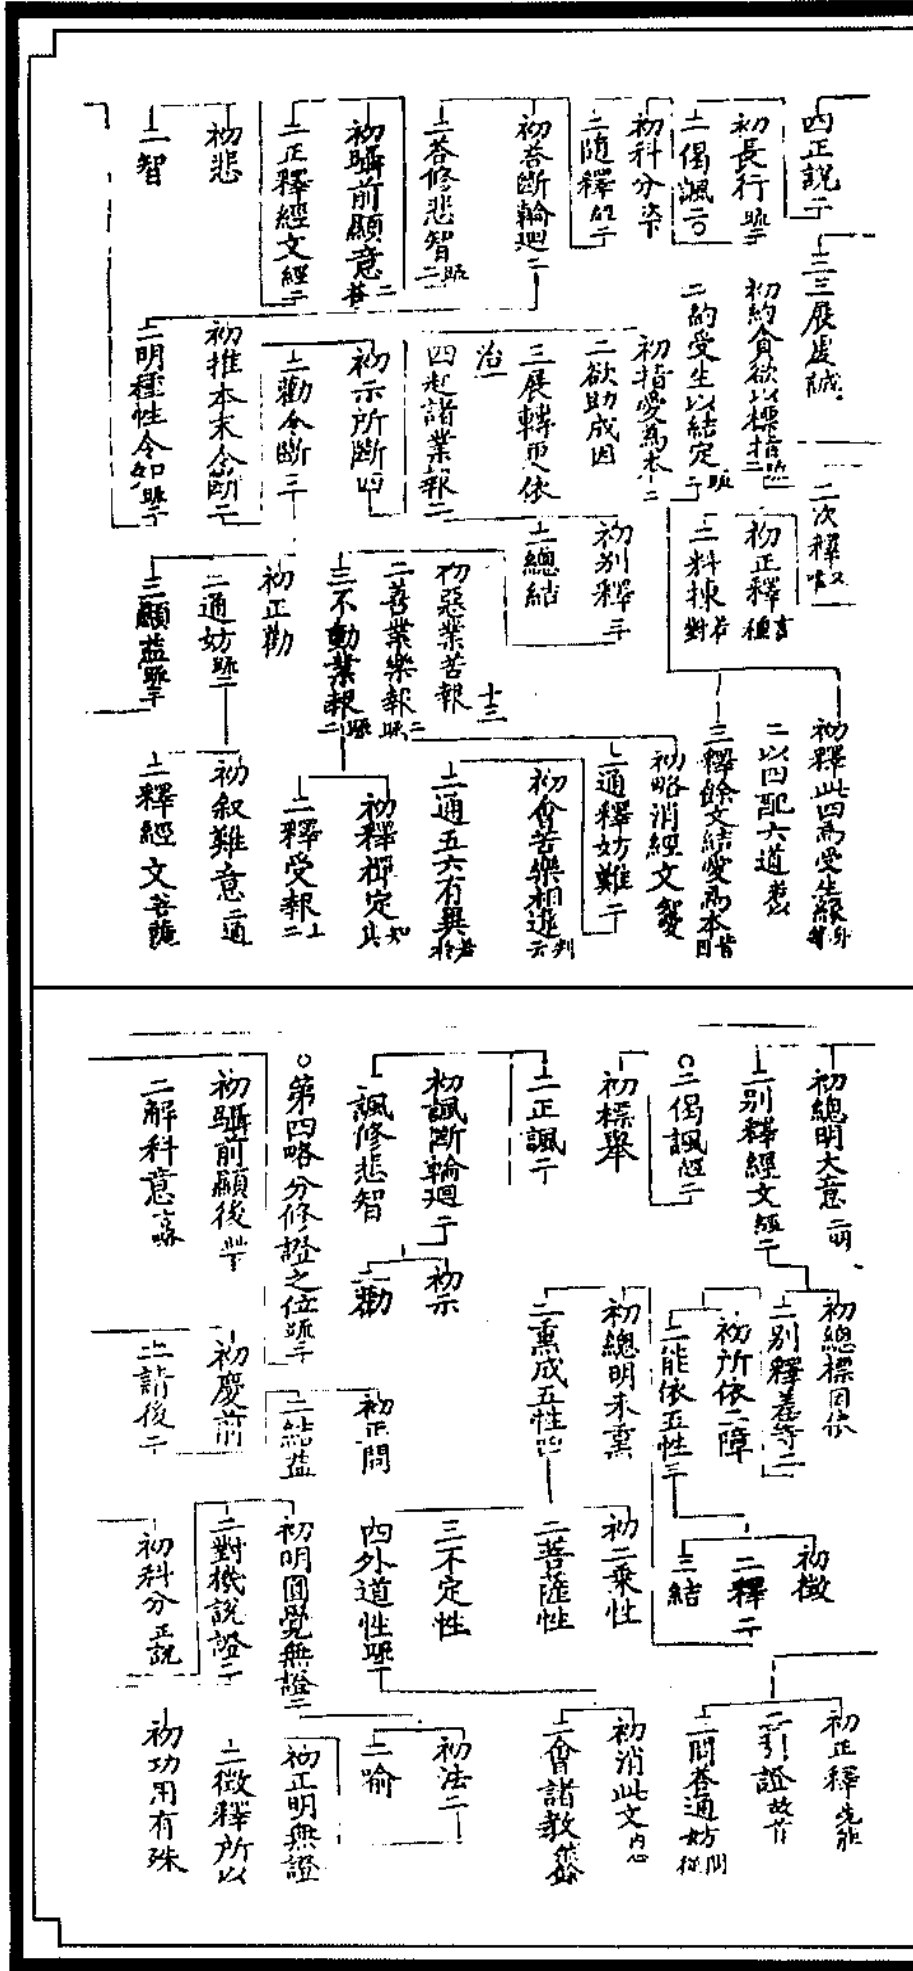 四正說二
初長行疏二
二偈諷二○
初科分
二隨釋經二
初答斷輪迴二
二答修悲智疏二
初躡前顯意
二正釋經文經二
初悲
二智
三展虔誠
初約貪欲以標指疏二
二約受生以結定疏二
初指愛為本二
二欲助成因
三展轉更依
四起諸業報二
初示所斷四
二勸令斷三
初推本末令斷二
二明種性令知疏二
二次釋
初正釋
二料揀
初別釋三
二總結
初惡業苦報
二善業樂報疏二
三不動業報疏二
初正勸
二通妨疏二
三顯益疏二
初釋此四為受生緣
二以四配六道
三釋餘文結愛為本
初略消經文
二通釋妨難二
初會苦樂相違
二通五六有異
初釋禪定
二釋受報
初敘難意二通
二釋經文菩薩
初總明大意二明
二別釋經文經二
○二偈諷經二
初標舉
二正諷二
初諷斷輪迴二
諷修悲智
○第四略分修證之位疏二
初躡前顯後
二解科意
初總標因依
二別釋差等二
初所依二障
二能依五性三
初總明未熏
二熏成五性四
初示
二勸
初正問
二結益
初慶前
二請後二
初徵
二釋二
三結
初二乘性
二菩薩性
三不定性
四外道性疏二
初明圓覺無證二
二對機說證二
初科分正說
初正釋
二引證
三問答通妨
初消此文
二會諸教
初法二
二喻
初正明無證
二徵釋所以
初功用有殊